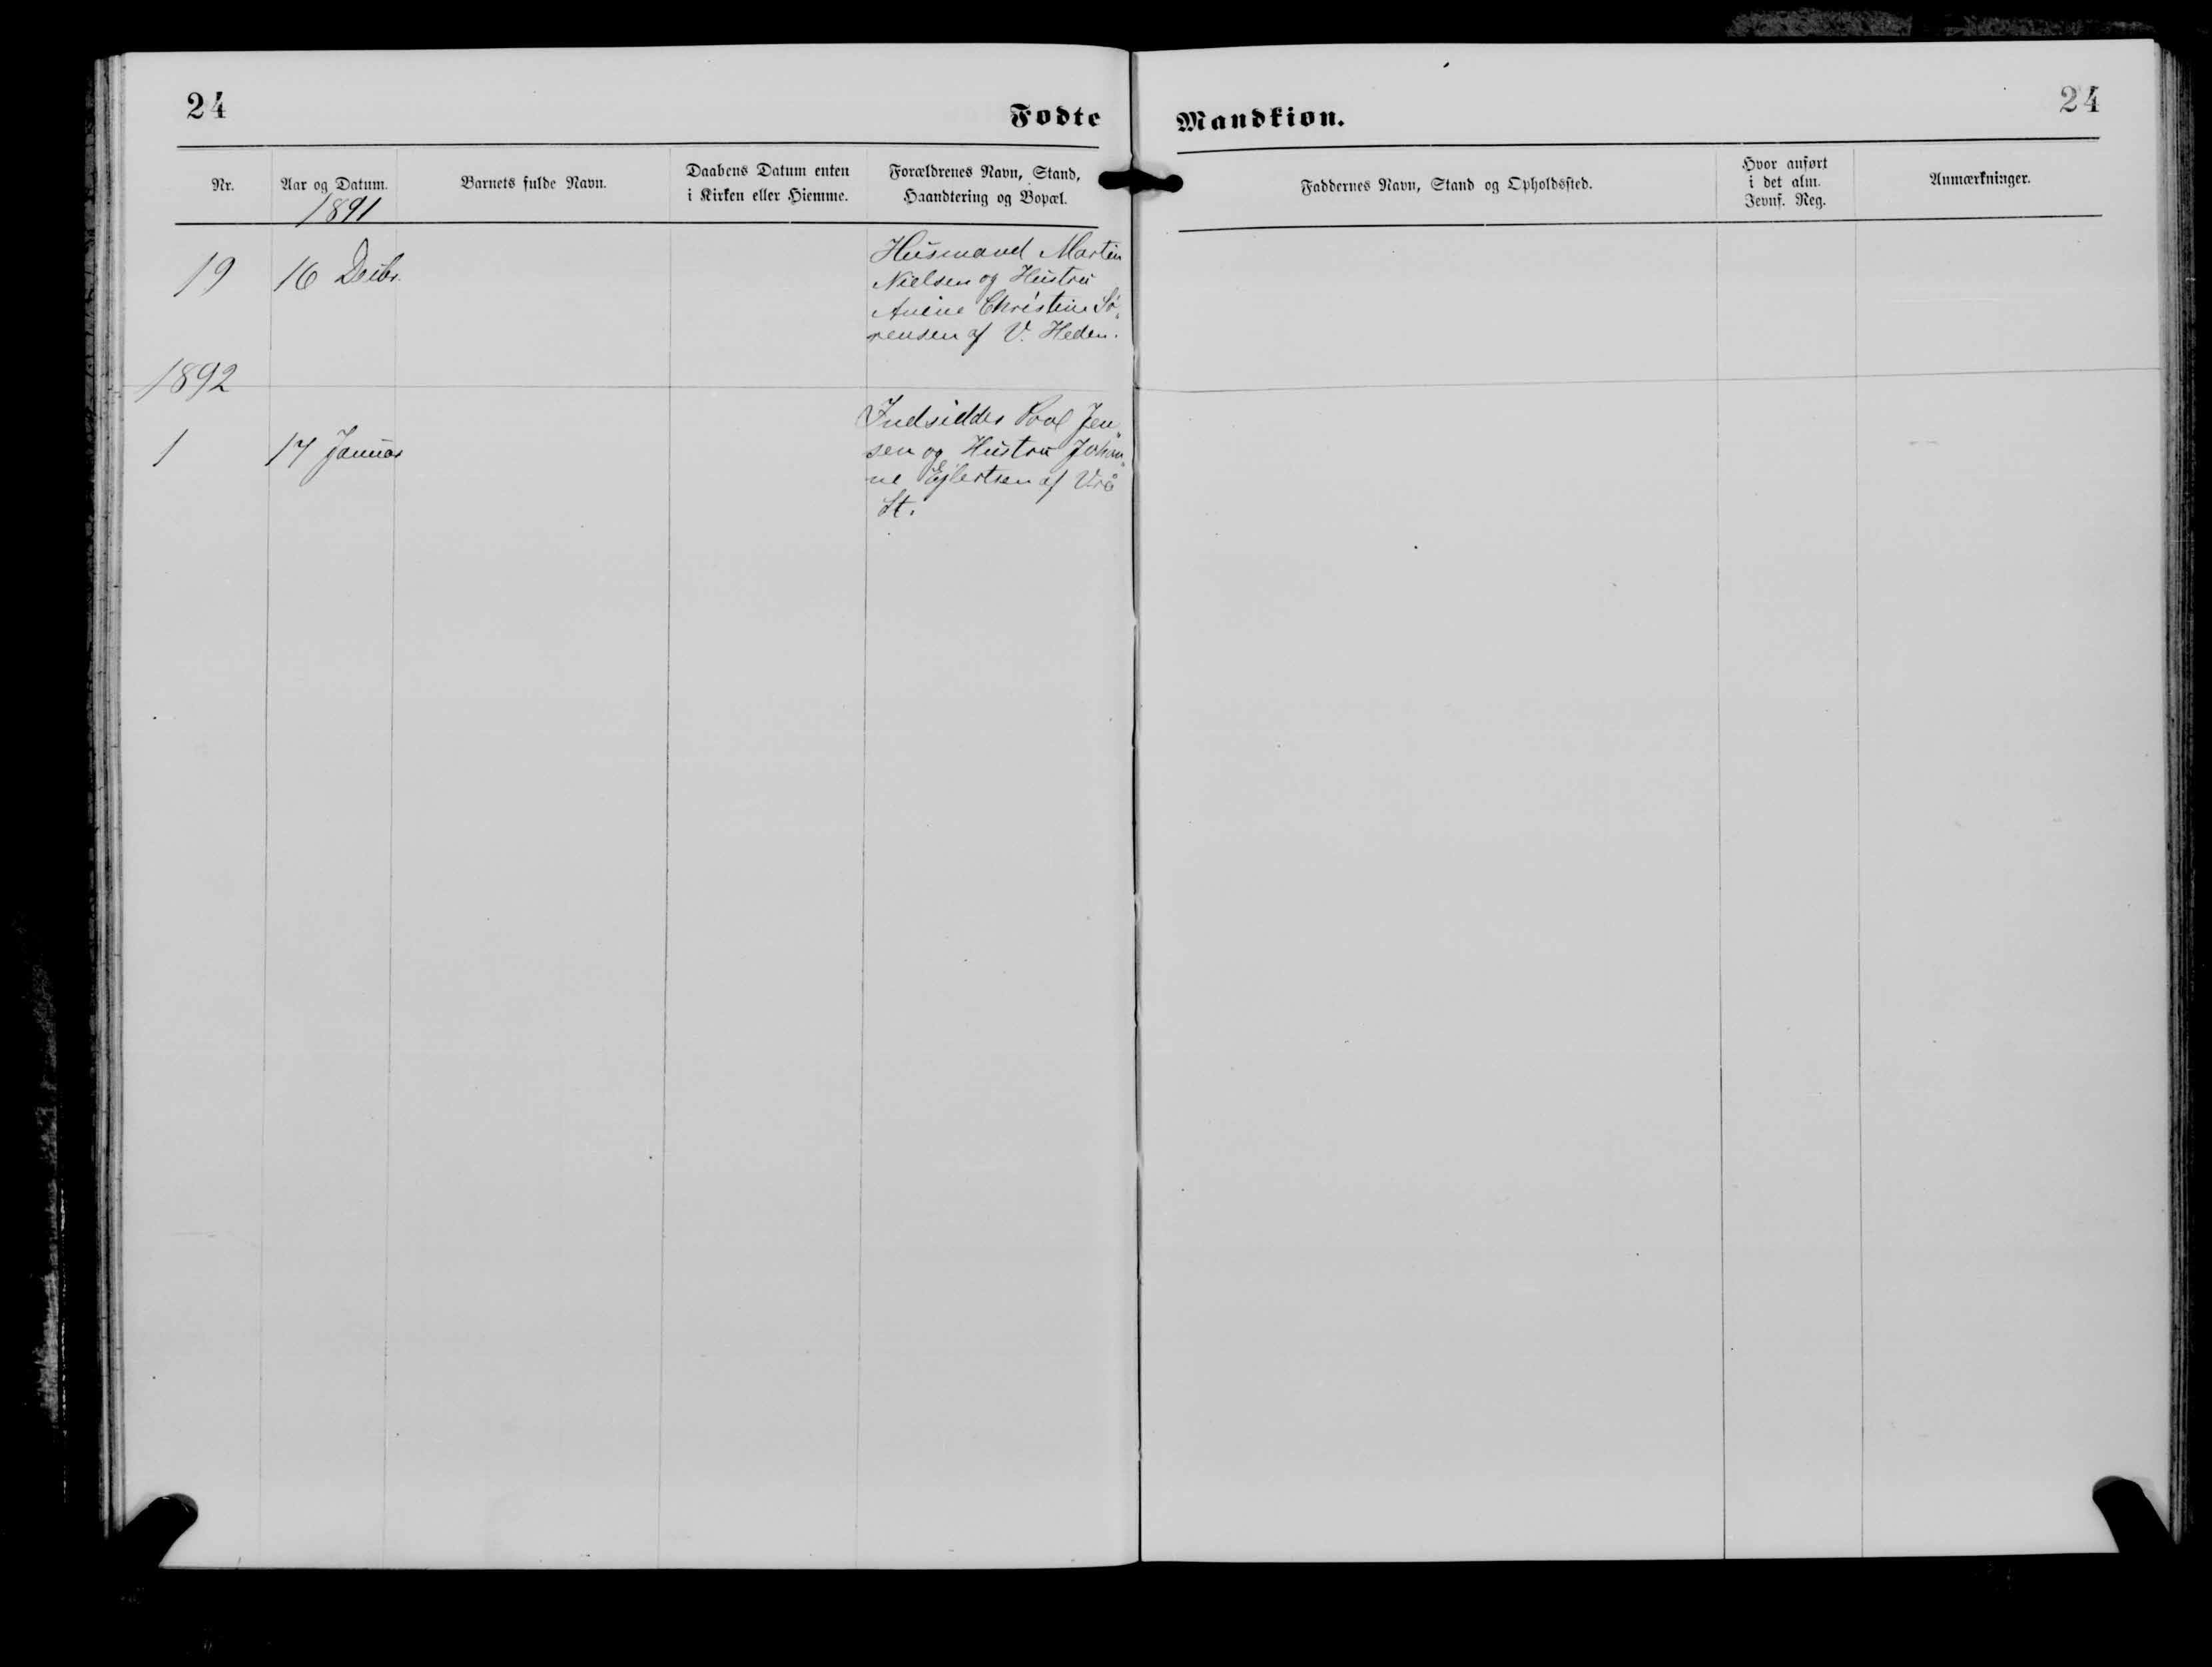 24
Fødte Mandkiøn.
24
Nr.
Aar og Datum.
1891
Barnets fulde Navn.
Daabens Datum enten
i Kirken eller Hiemme.
Forældrenes Navn, Stand,
Haandtering og Bopæl.
Faddernes Navn, Stand og Opholdssted.
Hvor anført
i det alm.
Jevnf. Reg.
Anmærkninger.
19
16 Decbr.
Husmand Martin
Nielsen og Hustru
Anine Christine Sø-
rensen af V. Heden.
1892
1
17 Januar
Indsidder Poul Jen-
sen og Hustru Johan-
ne Ejlertsen af Vrå
St.